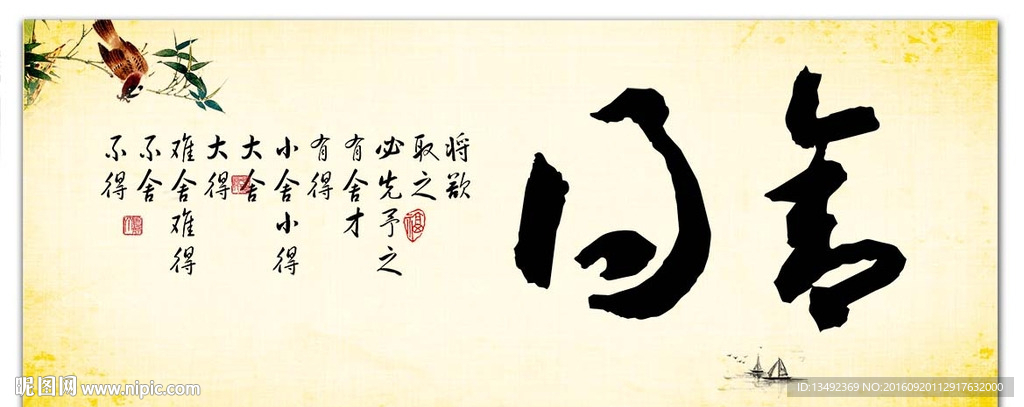 舍得
将欲
取之
必先予之
有舍才
有得
小舍小得
大舍
大得
难舍难得
不舍
不得
福
昵图网 www.nipic.com
ID:13492369 NO:20160920112917632000